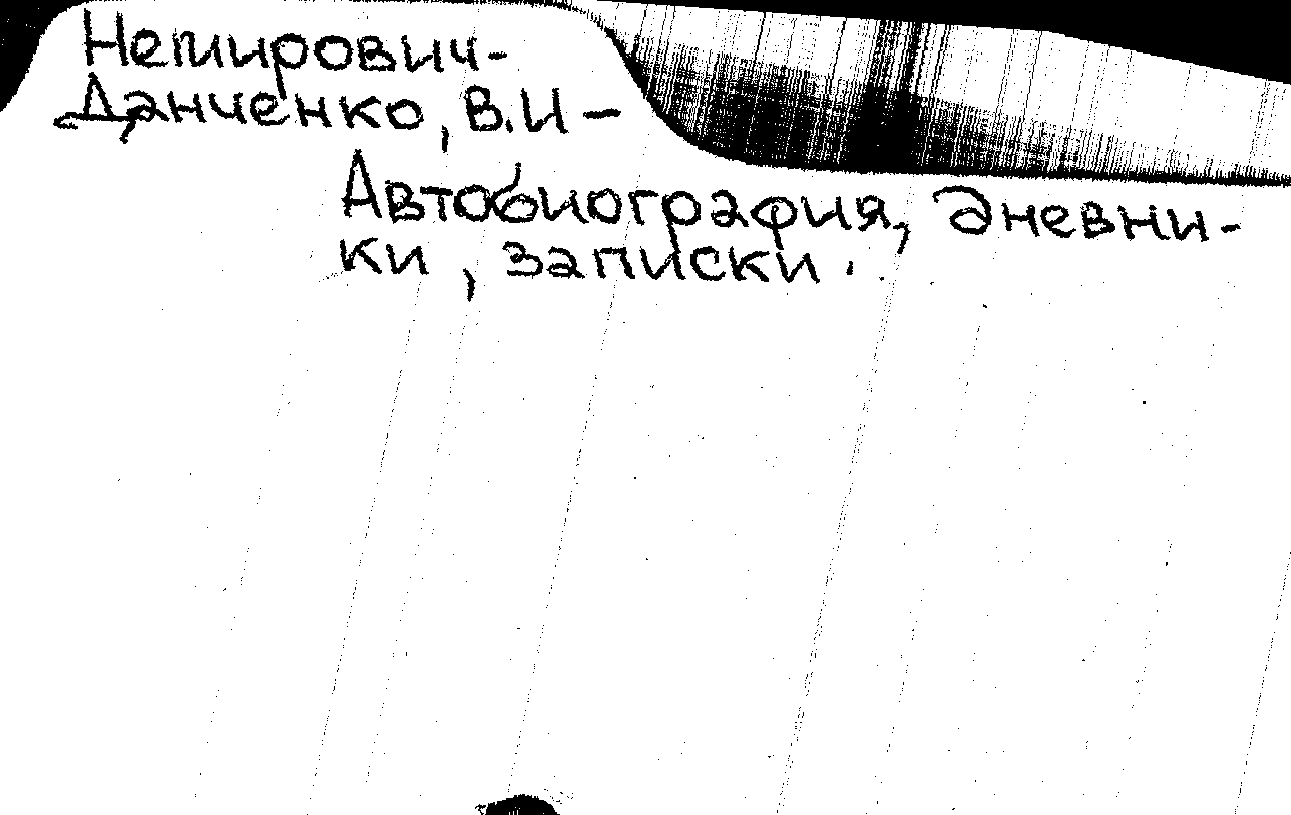 Немирович-
Данченко, В.И –
Автобиография, дневни-
ки, записки.